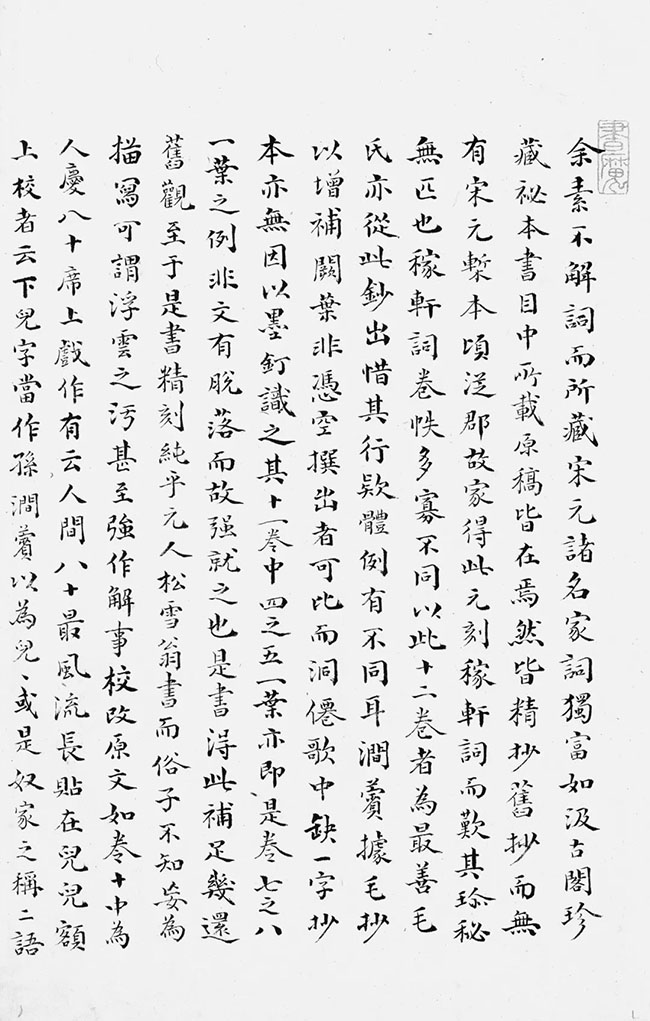 余素不解詞而所藏宋元諸名家詞獨富如汲古閣珍
藏祕本書目中所載原稿皆在焉然皆精抄舊抄而無
有宋元槧本頃從郡故家得此元刻稼軒詞而歎其珎秘
無匹也稼軒詞卷帙多寡不同以此十二卷者為最善毛
氏亦從此鈔出惜其行欵體例有不同耳澗薲據毛抄
以增補闕葉非憑空撰出者可比而洞僊歌中缺一字抄
本亦無因以墨釘識之其十一卷中四之五一葉亦即是卷七之八
一葉之例非文有脫落而故强就之也是書淂此補足幾還
舊觀至于是書精刻純乎元人松雪翁書而俗子不知妄為
描寫可謂浮雲之污甚至強作解事校改原文如卷十中為
人慶八十席上戲作有云人間八十最風流長貼在兒兒額
上校者云下兒字當作孫澗薲以為兒〻或是奴家之稱二語